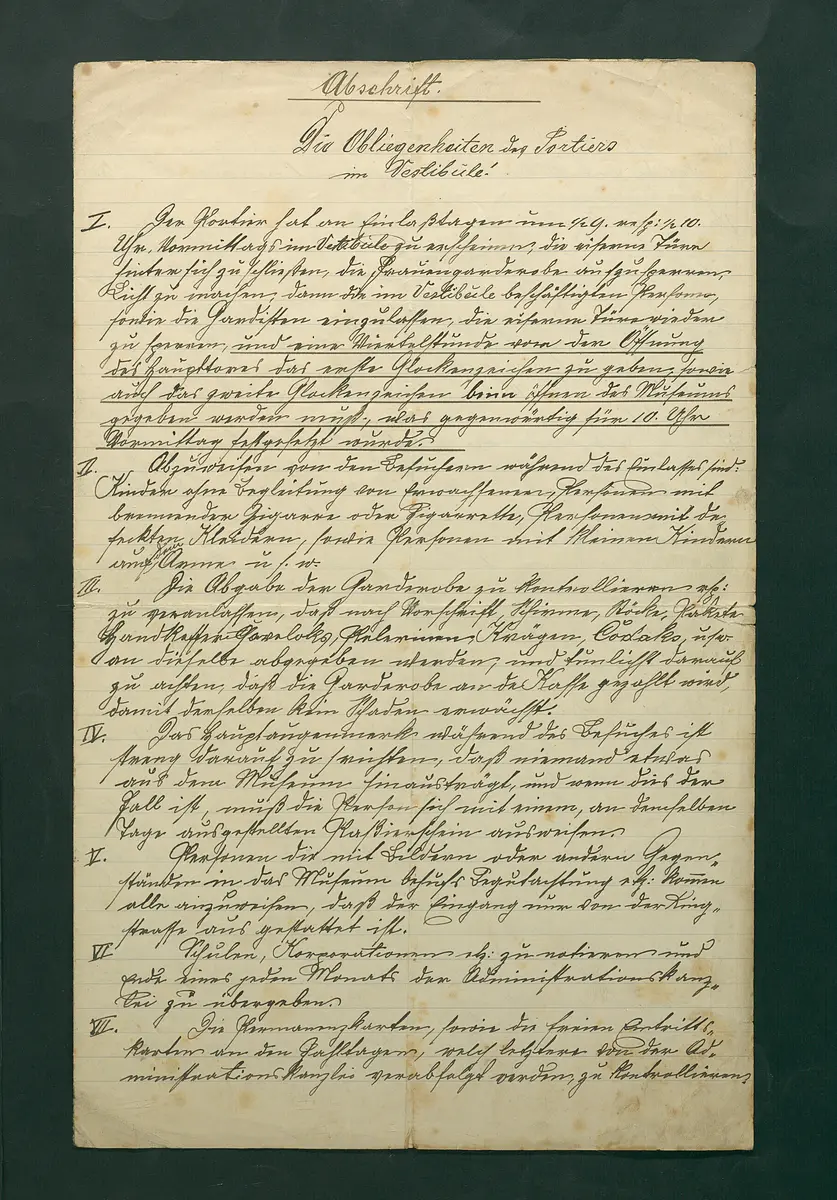 Abschrift.
Die Obliegenheiten des Portiers
im Vestibule!
I. Der Portier hat an Einlaßtagen um ½ 9. resp: ½ 10.
Uhr, Vormittags im Vestibule zu erscheinen, die eiserne Türe
hinter sich zu schließen, die Frauengarderobe aufzusperren,
Licht zu machen, dann die im Vestibule beschäftigten Personen,
sowie die Gardisten einzulassen, die eiserne Türe wieder
zu sperren, und eine Viertelstunde vor der Öffnung
des Haupttores das erste Glockenzeichen zu geben, sowie
auch das zweite Glockenzeichen beim öffnen des Museums
gegeben werden muß, was gegenwärtig für 10. Uhr
Vormittag festgesetzt wurde.
II. Abzuweisen von den Besuchern während des Einlasses sind:
Kinder ohne Begleitung von Erwachsenen, Personen mit
brennender Zigarre oder Zigarrette, Personen mit de-
fekten Kleidern, sowie Personen mit kleinen Kindern
auf dem Arme u. s. w.
III. Die Abgabe der Garderobe zu kontrollieren resp:
zu veranlassen, daß nach Vorschrift Schirme, Stöcke, Pakete
Handkoffer, Haveloks, Pelerinen, Krägen, Codaks, usw.
an dieselbe abgegeben werden, und tunlichst darauf
zu achten, daß die Garderobe an de Kasse gezahlt wird,
damit derselben kein Schaden erwächst.
IV. Das Hauptaugenmerk während des Besuches ist
streng darauf zu richten, daß niemand etwas
aus dem Museum hinausträgt, und wenn dies der
Fall ist, muß die Person sich mit einem, an demselben
Tage ausgestellten Passierschein ausweisen.
V. Personen die mit Bildern oder andern Gegen-
ständen in das Museum behufs Begutachtung etz: kommen
alle anzuweisen, daß der Eingang nur von der Ring-
strasse aus gestattet ist.
VI Schulen, Korporationen etz: zu notieren und
Ende eines jeden Monats der Administrationskanz-
lei zu übergeben.
VII. Die Permanenzkarten, sowie die freien Eintritts-
karten an den Zahltagen, welch letztere von der Ad-
ministrationskanzlei verabfolgt werden, zu kontrollieren,